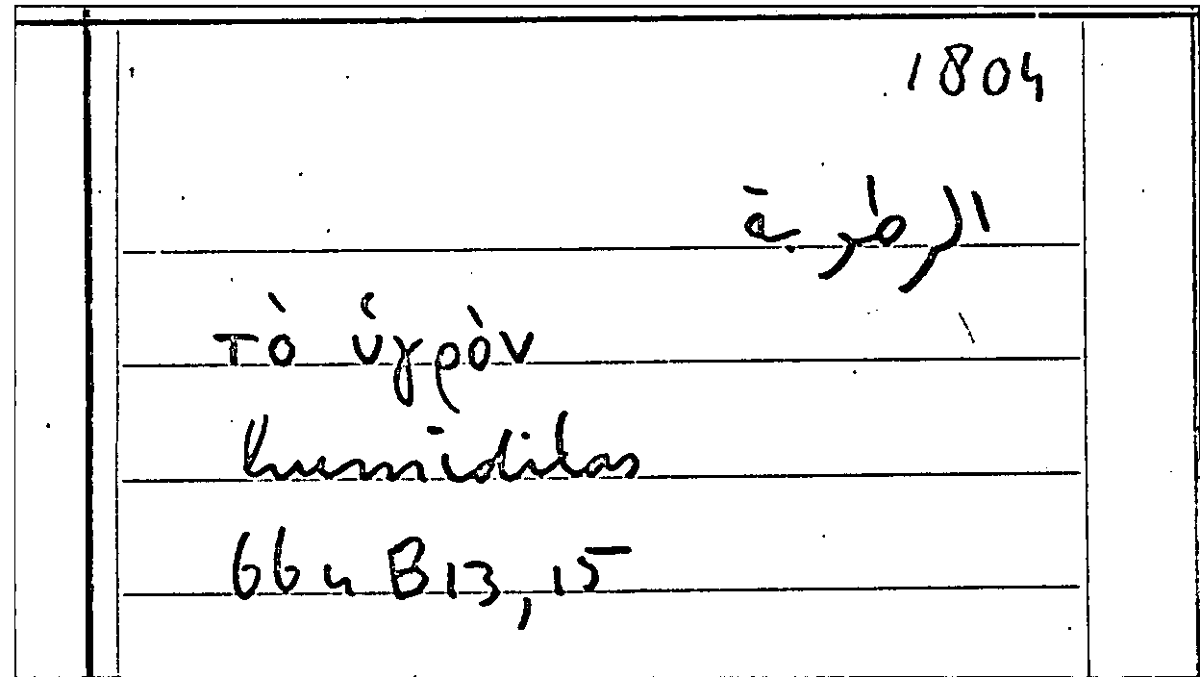 1804
الرطوبة
τὸ ὑγρὸν
humiditas
664 B13, 15